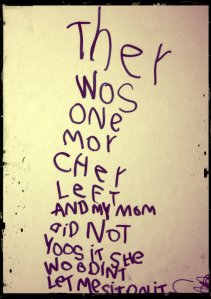 Ther
wos
one
mor
cher
left
AND MY MOM
DID NOT
YOOS it SHE
WOODINT
LET ME SIT ON IT